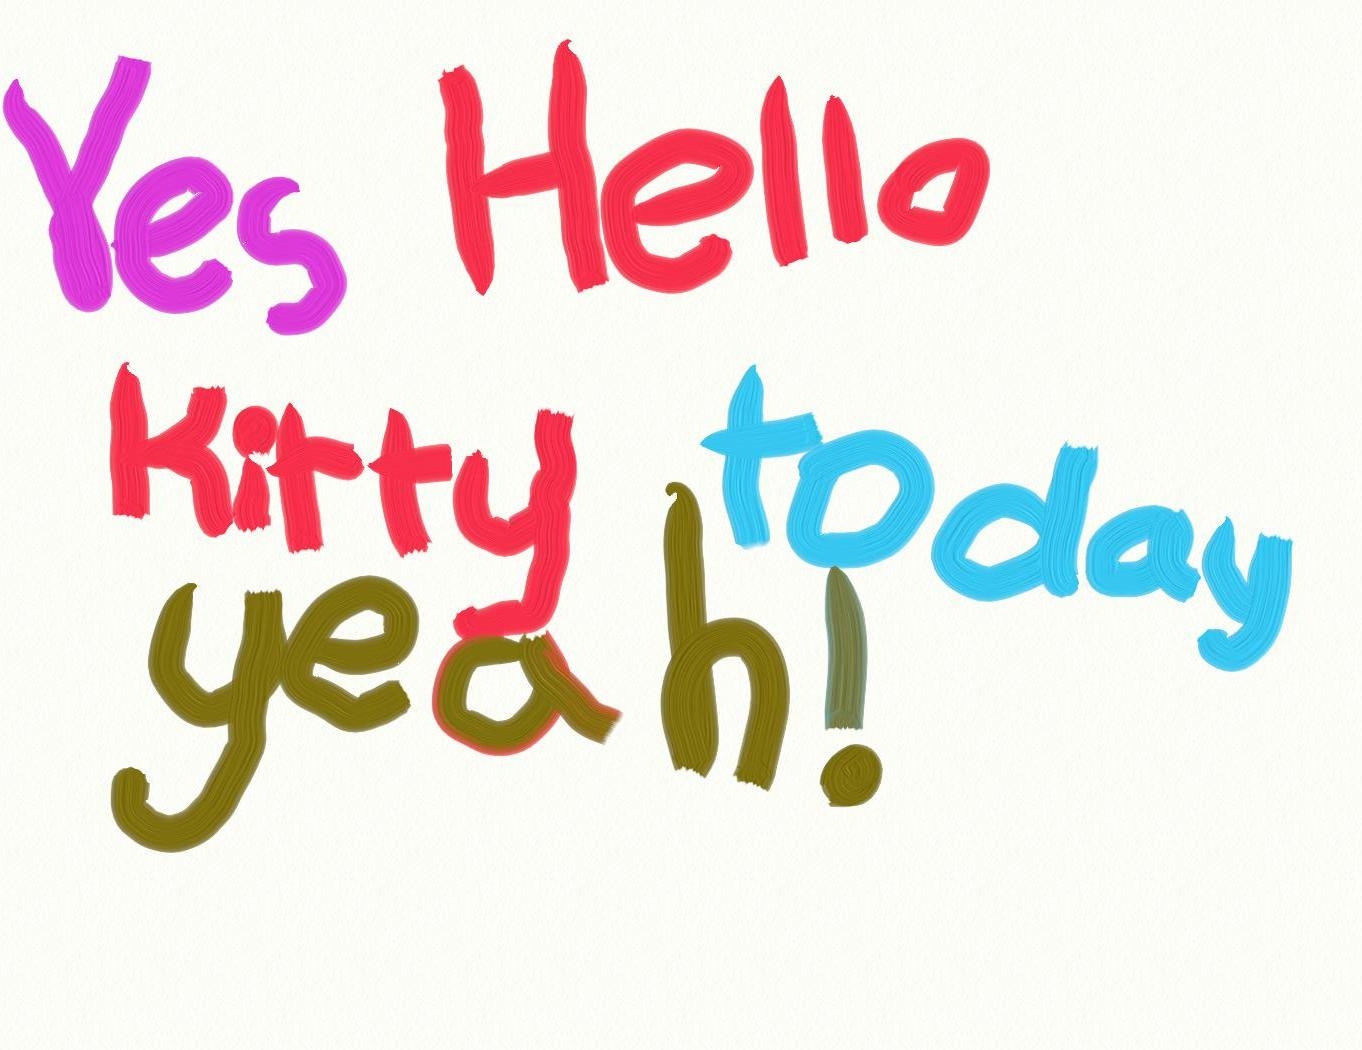 Yes Hello
Kitty today
yeah!